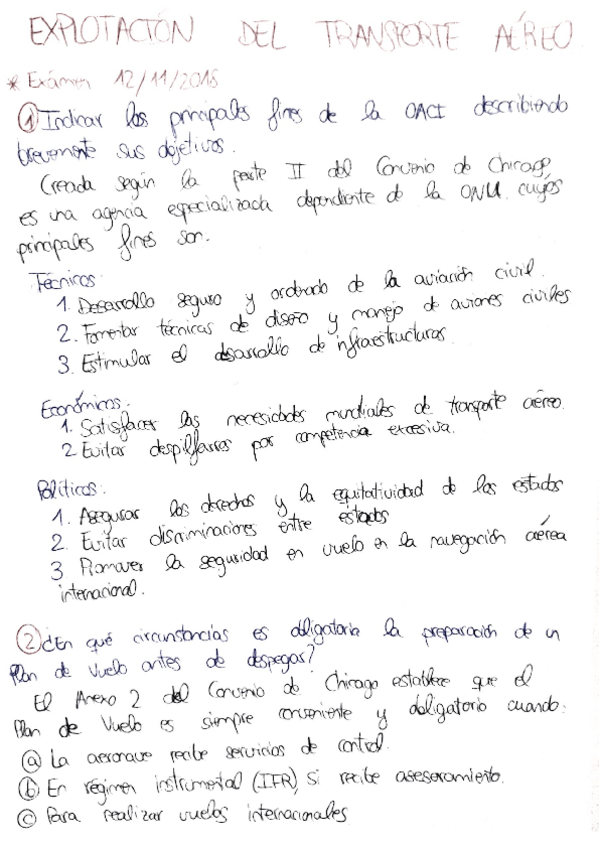 EXPLOTACIÓN DEL TRANSPORTE AÉREO
* Exámen 12/11/2018
① Indicar los principales fines de la OACI describiendo
brevemente sus objetivos.
Creada según la parte II del Convenio de Chicago,
es una agencia especializada dependiente de la ONU cuyos
principales fines son.
Técnicos:
1. Desarrollo seguro y ordenado de la aviación civil.
2. Fomentar técnicas de diseño y manejo de aviones civiles
3. Estimular el desarrollo de infraestructuras.
Económicos:
1. Satisfacer las necesidades mundiales de transporte aéreo.
2 Evitar despilfarros por competencia excesiva.
Políticos:
1. Asegurar los derechos y la equitatividad de los estados
2. Evitar discriminaciones entre estados
3 Promover la seguridad en vuelo en la navegación aérea
internacional.
② ¿En qué circunstancias es obligatoria la preparación de un
Plan de Vuelo antes de despegar?
El Anexo 2 del Convenio de Chicago establece que el
Plan de Vuelo es siempre conveniente y obligatorio cuando:
ⓐ La aeronave recibe servicios de control.
ⓑ En régimen instrumental (IFR), si recibe asesoramiento.
ⓒ Para realizar vuelos internacionales